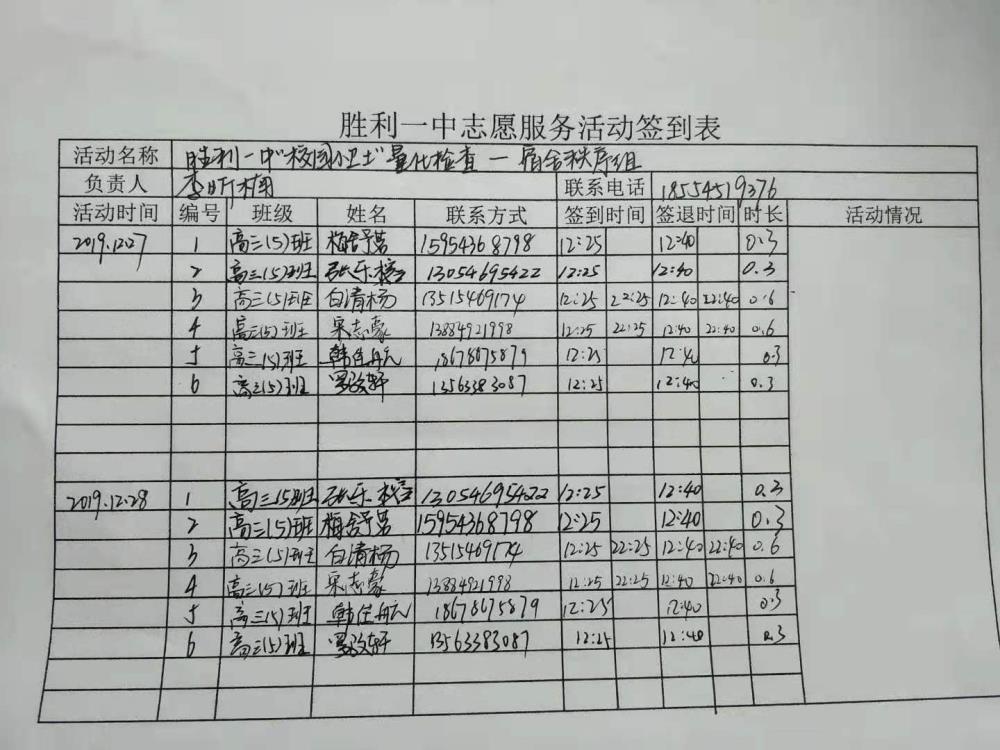 胜利一中志愿服务活动签到表
活动名称 胜利一中"校园卫士"量化检查一宿舍秩序组
负责人 李昕楠 联系电话 18554519376
活动时间 编号 班级 姓名 联系方式 签到时间 签退时间 时长 活动情况
2019.12.27 1 高三(5)班 梅舒茗 15954368798 12:25 12:40 0.3
2 高三(5)班 13054695422 12:25 12:40 0.3
3 高三(5)班 白清杨 13515469174 12:25 22:25 12:40 22:40 0.6
4 高三(5)班 宋志豪 13884921998 12:25 22:25 12:40 22:40 0.6
5 高三(5)班 韩佳航 18678675879 12:25 12:40 0.3
6 高三(5)班 13563383087 12:25 12:40 0.3
2019.12.28 1 高三(5)班 13054695422 12:25 12:40 0.3
2 高三(5)班 梅舒茗 15954368798 12:25 12:40 0.3
3 高三(5)班 白清杨 13515469174 12:25 22:25 12:40 22:40 0.6
4 高三(5)班 宋志豪 13884921998 12:25 22:25 12:40 22:40 0.6
5 高三(5)班 韩佳航 18678675879 12:25 12:40 0.3
6 高三(5)班 13563383087 12:25 12:40 0.3